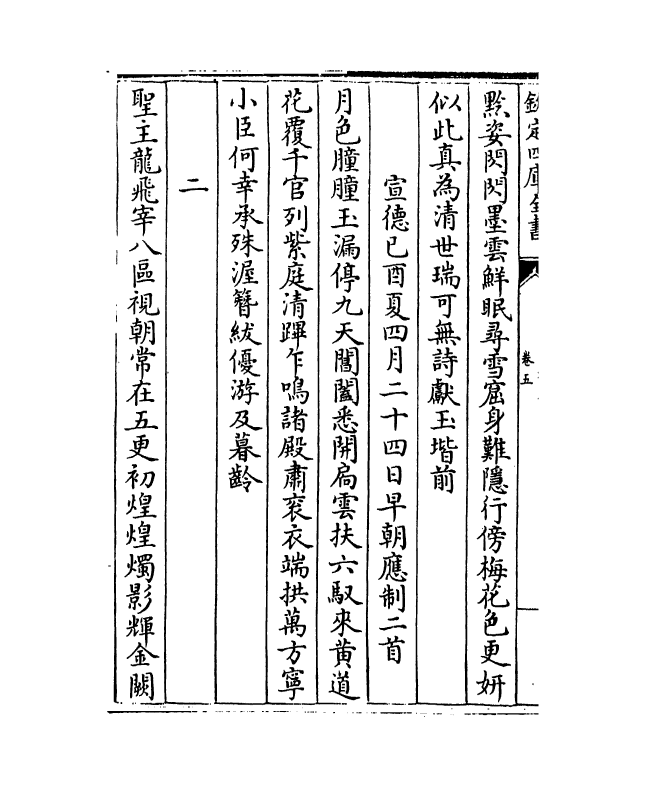 欽定四庫全書
卷五
黔姿閃閃墨雲鮮眠尋雪窟身難隱行傍梅花色更妍
似此真為清世瑞可無詩獻玉堦前
宣德己酉夏四月二十四日早朝應制二首
月色朣朣玉漏停九天閶闔悉開扃雲扶六馭來黃道
花覆千官列紫庭清蹕乍鳴諸殿肅衮衣端拱萬方寧
小臣何幸承殊渥簪紱優游及暮齡
二
聖主龍飛宰八區視朝常在五更初煌煌燭影輝金闕